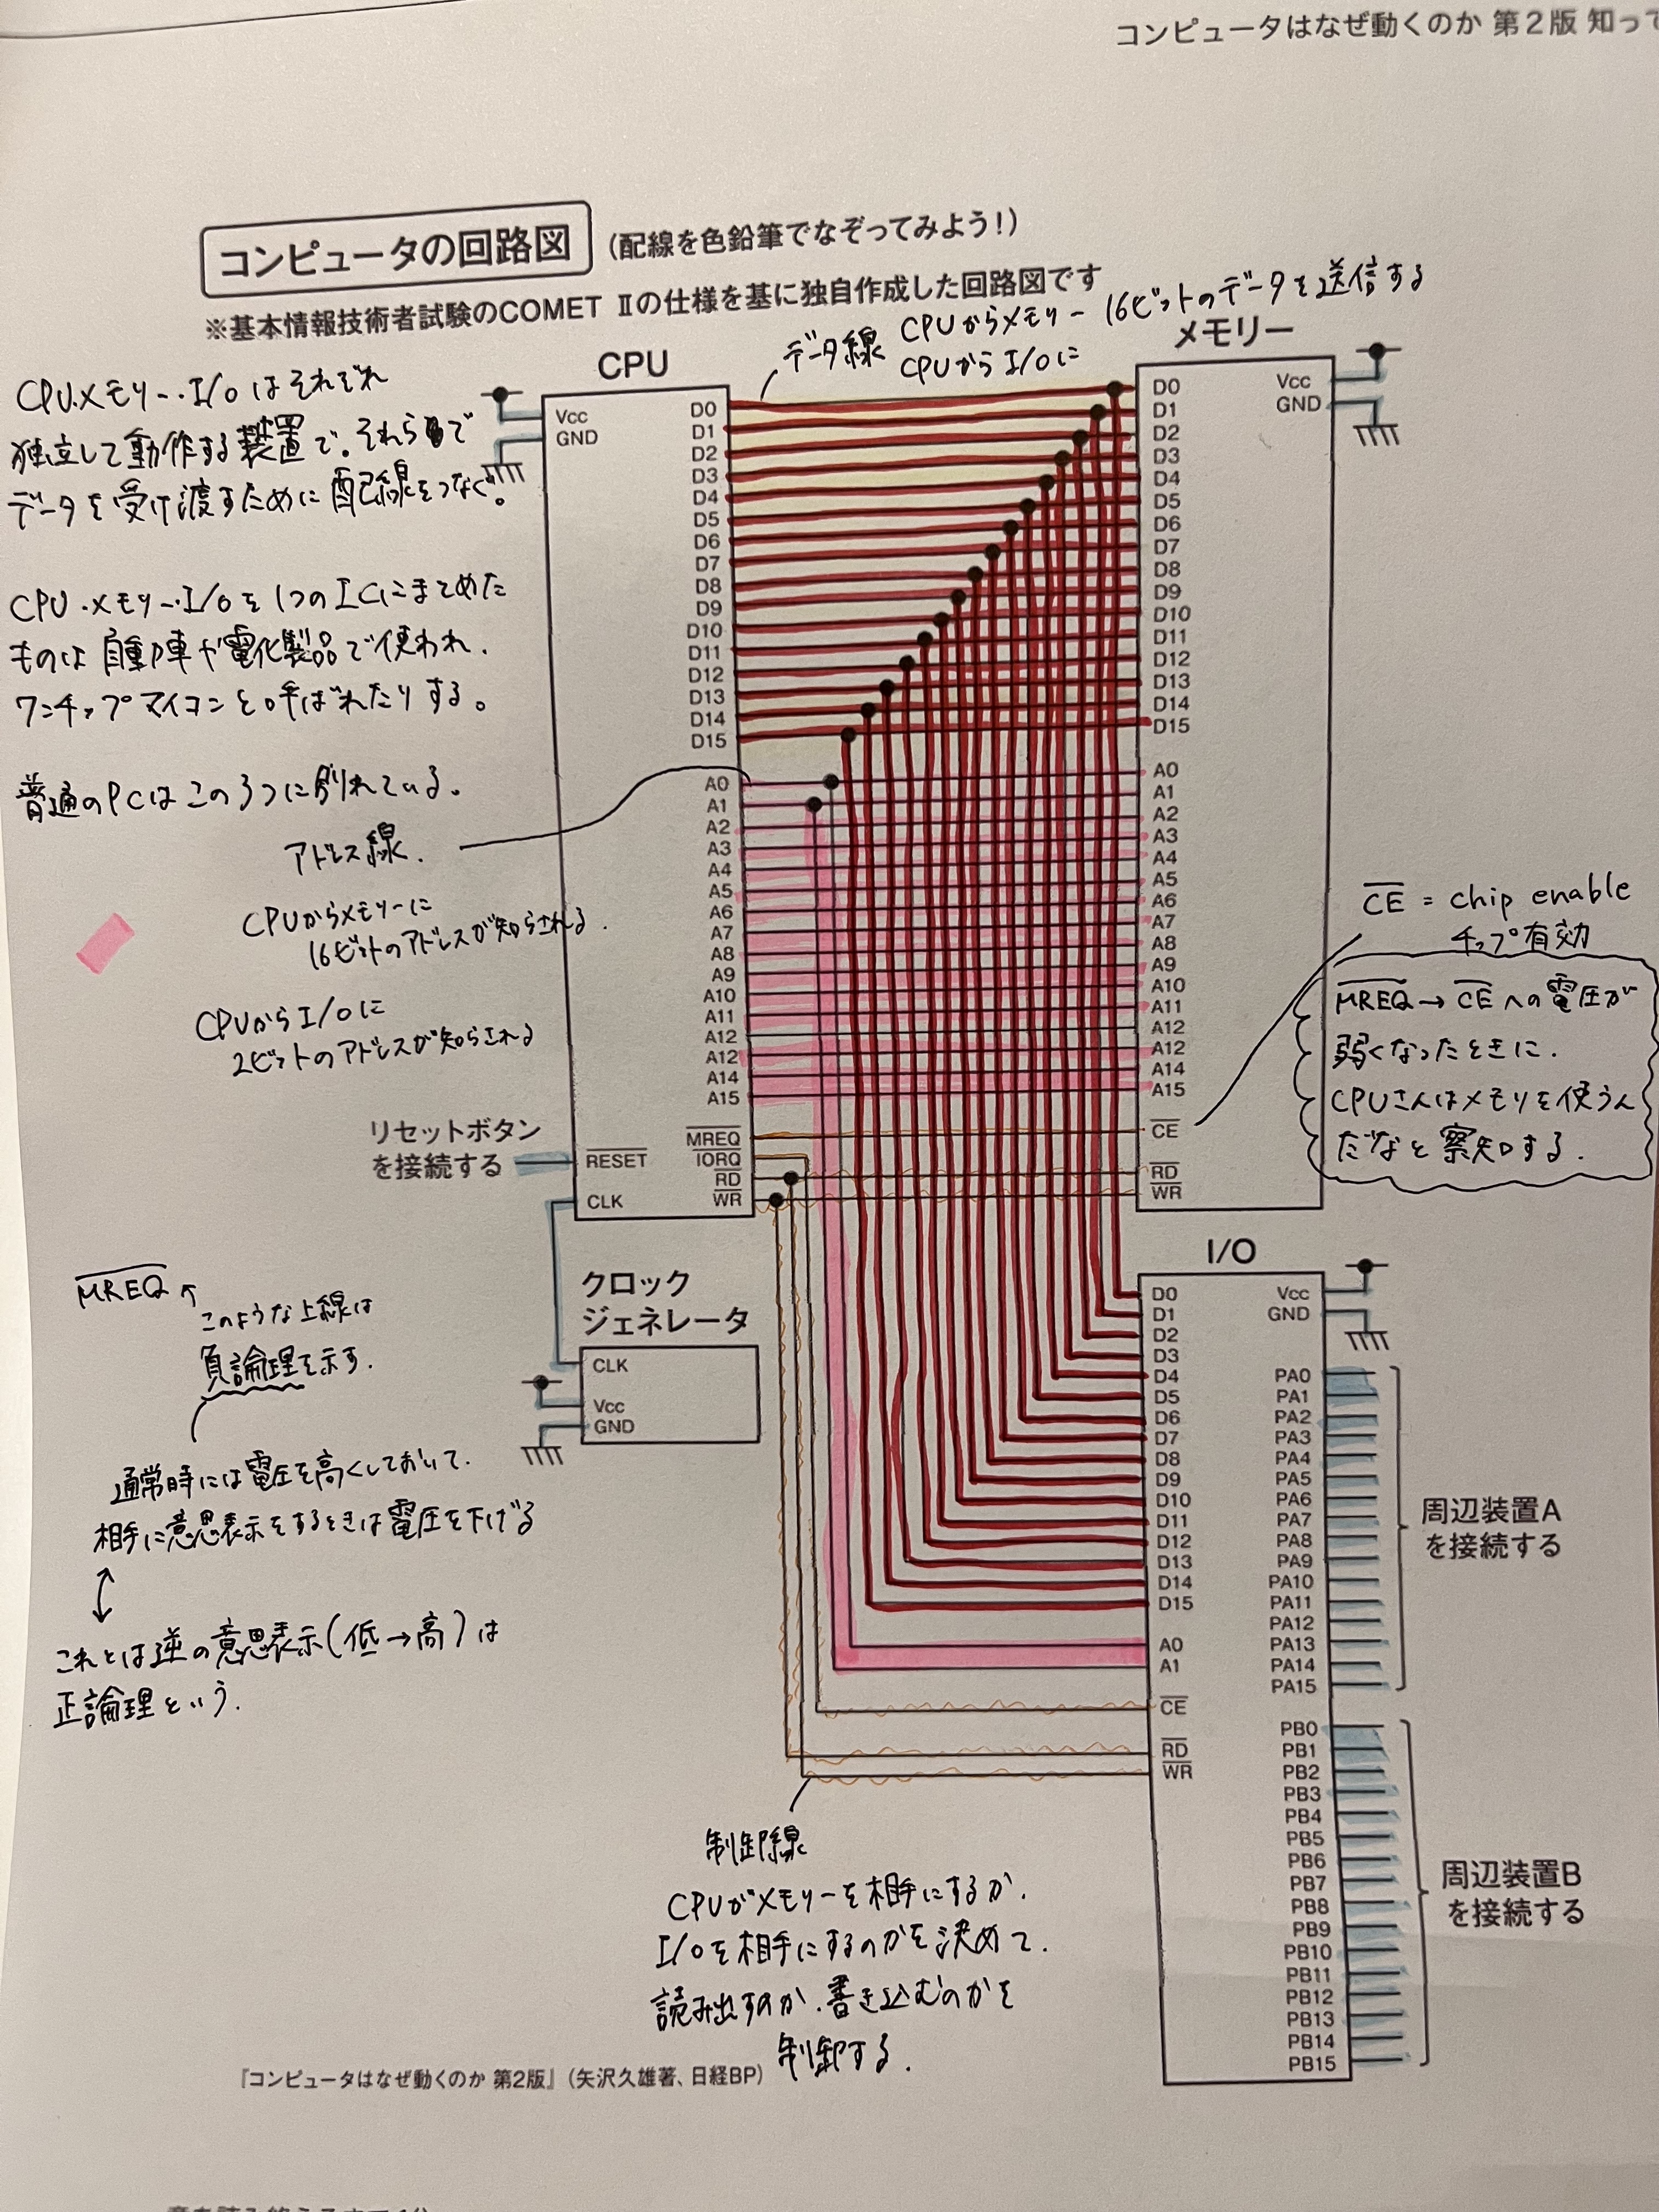 コンピュータはなぜ動くのか 第2版 知って
コンピュータの回路図
(配線を色鉛筆でなぞってみよう!)
※基本情報技術者試験のCOMET Ⅱの仕様を基に独自作成した回路図です
データ線 CPUからメモリー 16ビットのデータを送信する
CPUからI/Oに
CPU.メモリー.I/Oはそれぞれ
独立して動作する装置で。それらで
データを受け渡すために配線をつなぐ。
CPU.メモリー.I/Oを1つのICにまとめた
ものは自動車や電化製品で使われ.
ワンチップマイコンと呼ばれたりする。
普通のPCはこの3つに別れている。
アドレス線.
CPUからメモリーに
16ビットのアドレスが知らされる.
CPUからI/Oに
2ビットのアドレスが知らされる
リセットボタン
を接続する
CPU
Vcc
GND
D0
D1
D2
D3
D4
D5
D6
D7
D8
D9
D10
D11
D12
D13
D14
D15
A0
A1
A2
A3
A4
A5
A6
A7
A8
A9
A10
A11
A12
A12
A14
A15
MREQ
IORQ
RD
WR
RESET
CLK
メモリー
D0
D1
D2
D3
D4
D5
D6
D7
D8
D9
D10
D11
D12
D13
D14
D15
A0
A1
A2
A3
A4
A5
A6
A7
A8
A9
A10
A11
A12
A12
A14
A15
CE
RD
WR
Vcc
GND
CE = chip enable
チップ有効
MREQ→CEへの電圧が
弱くなったときに.
CPUさんはメモリを使うん
だなと察知する.
MREQ
このような上線は
負論理を示す.
通常時には電圧を高くしておいて.
相手に意思表示をするときは電圧を下げる
これとは逆の意思表示(低→高)は
正論理という.
クロック
ジェネレータ
CLK
Vcc
GND
I/O
D0
D1
D2
D3
D4
D5
D6
D7
D8
D9
D10
D11
D12
D13
D14
D15
A0
A1
CE
RD
WR
Vcc
GND
PA0
PA1
PA2
PA3
PA4
PA5
PA6
PA7
PA8
PA9
PA10
PA11
PA12
PA13
PA14
PA15
PB0
PB1
PB2
PB3
PB4
PB5
PB6
PB7
PB8
PB9
PB10
PB11
PB12
PB13
PB14
PB15
周辺装置A
を接続する
周辺装置B
を接続する
制御線
CPUがメモリーを相手にするか.
I/Oを相手にするのかを決めて.
読み出すのか.書き込むのかを
制御する.
『コンピュータはなぜ動くのか 第2版』(矢沢久雄著、日経BP)